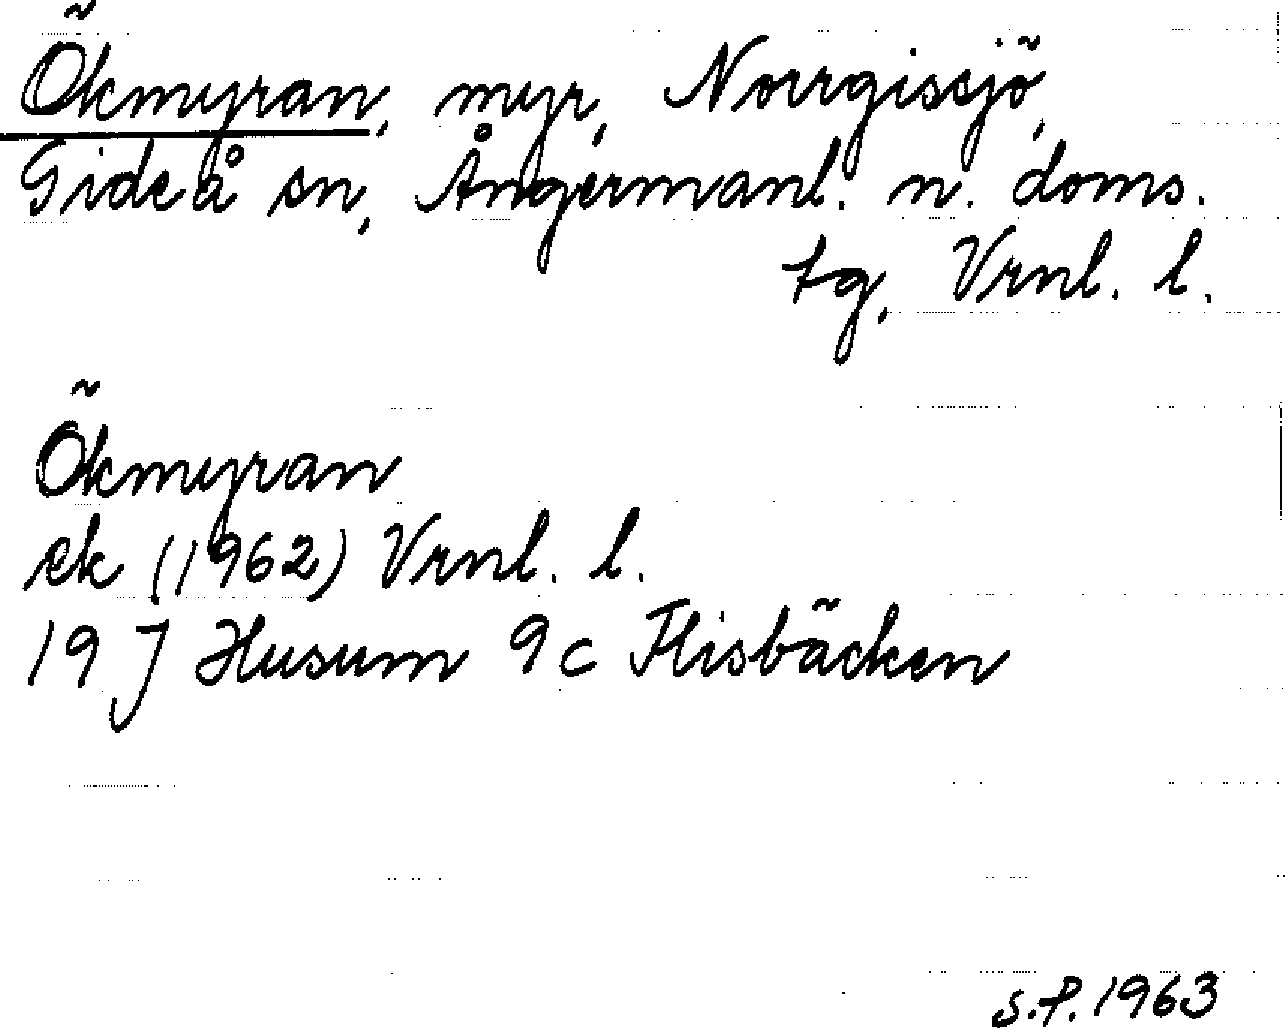 Ökmyran, myr, Norrgissjö,
Gideå sn, Ångermanl. n. doms.
tg, Vrnl. l.
Ökmyran
ek (1962) Vrnl. l.
19 J Husum 9c Flisbäcken
S.P. 1963